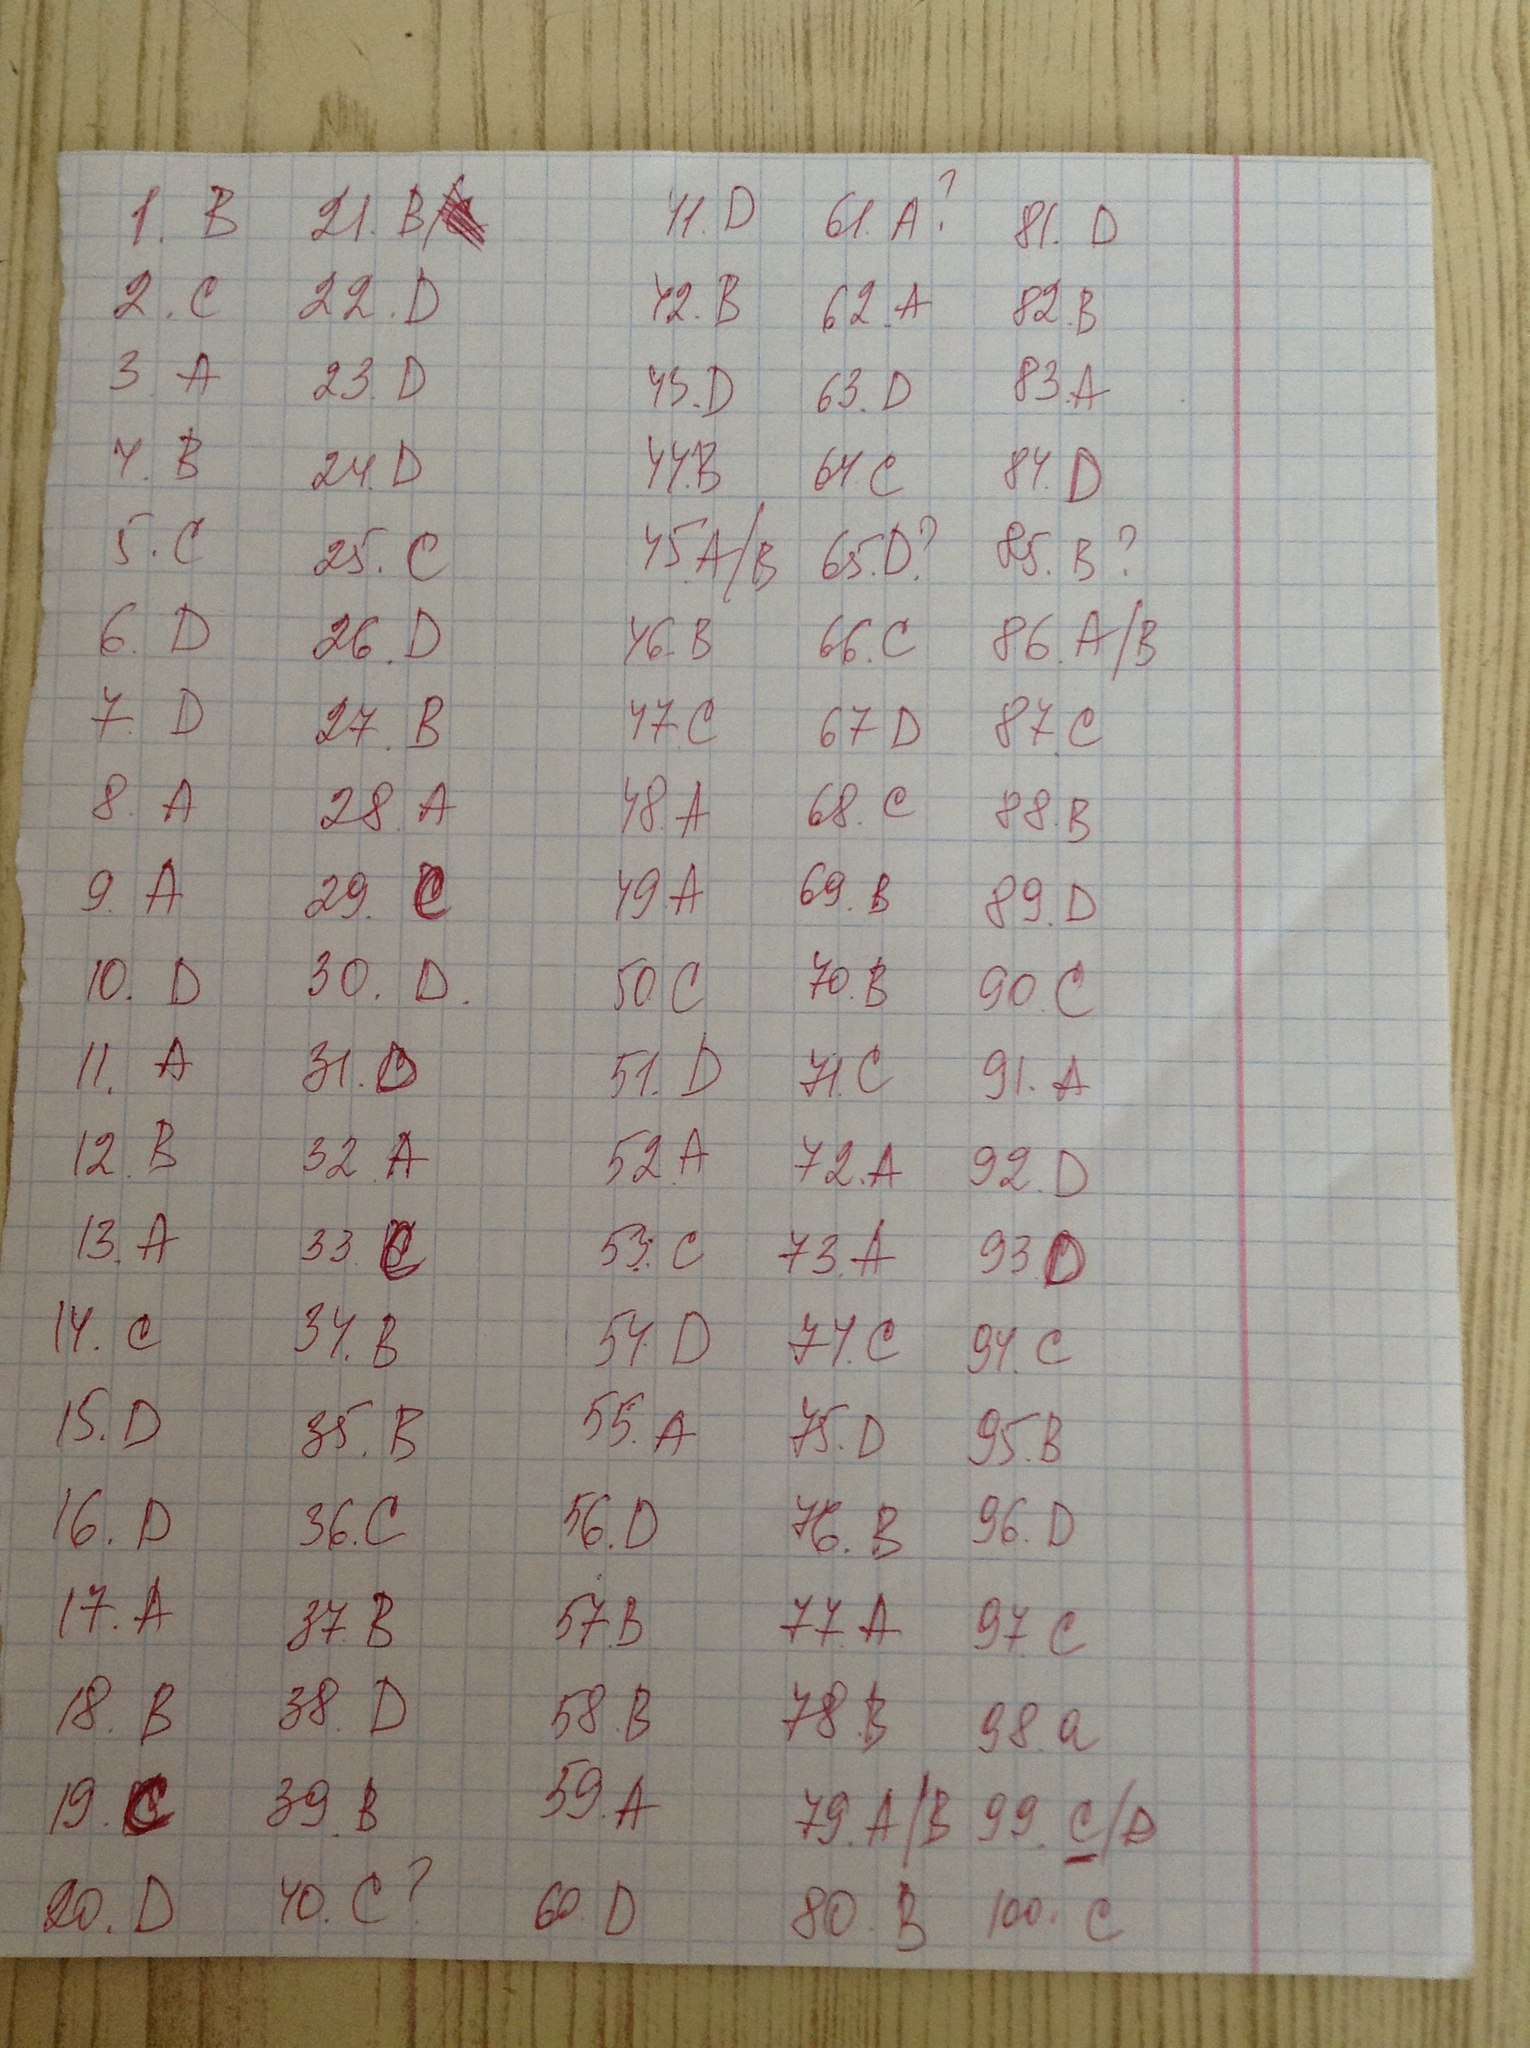 1. B 21. B/ 41. D 61. A? 81. D
2. C 22. D 42. B 62. A 82. B
3 A 23. D 43. D 63. D 83. A
4. B 24. D 44. B 64. C 84. D
5. C 25. C 45 A/B 65. D? 85. B?
6. D 26. D 46. B 66. C 86. A/B
7. D 27. B 47 C 67 D 87. C
8. A 28. A 48. A 68. C 88. B
9. A 29. C 49. A 69. B 89. D
10. D 30. D. 50 C 70. B 90. C
11. A 31. D 51. D 71. C 91. A
12. B 32 A 52 A 72. A 92. D
13. A 33. C 53. C 73. A 93 D
14. C 34. B 54. D 74. C 94. C
15. D 35. B 55. A 75. D 95. B
16. D 36. C 56. D 76. B 96. D
17. A 37 B 57 B 77. A 97. C
18. B 38. D 58. B 78. B 98. a
19. C 39. B 59. A 79. A/B 99. C/D
20. D 40. C? 60. D 80. B 100. C